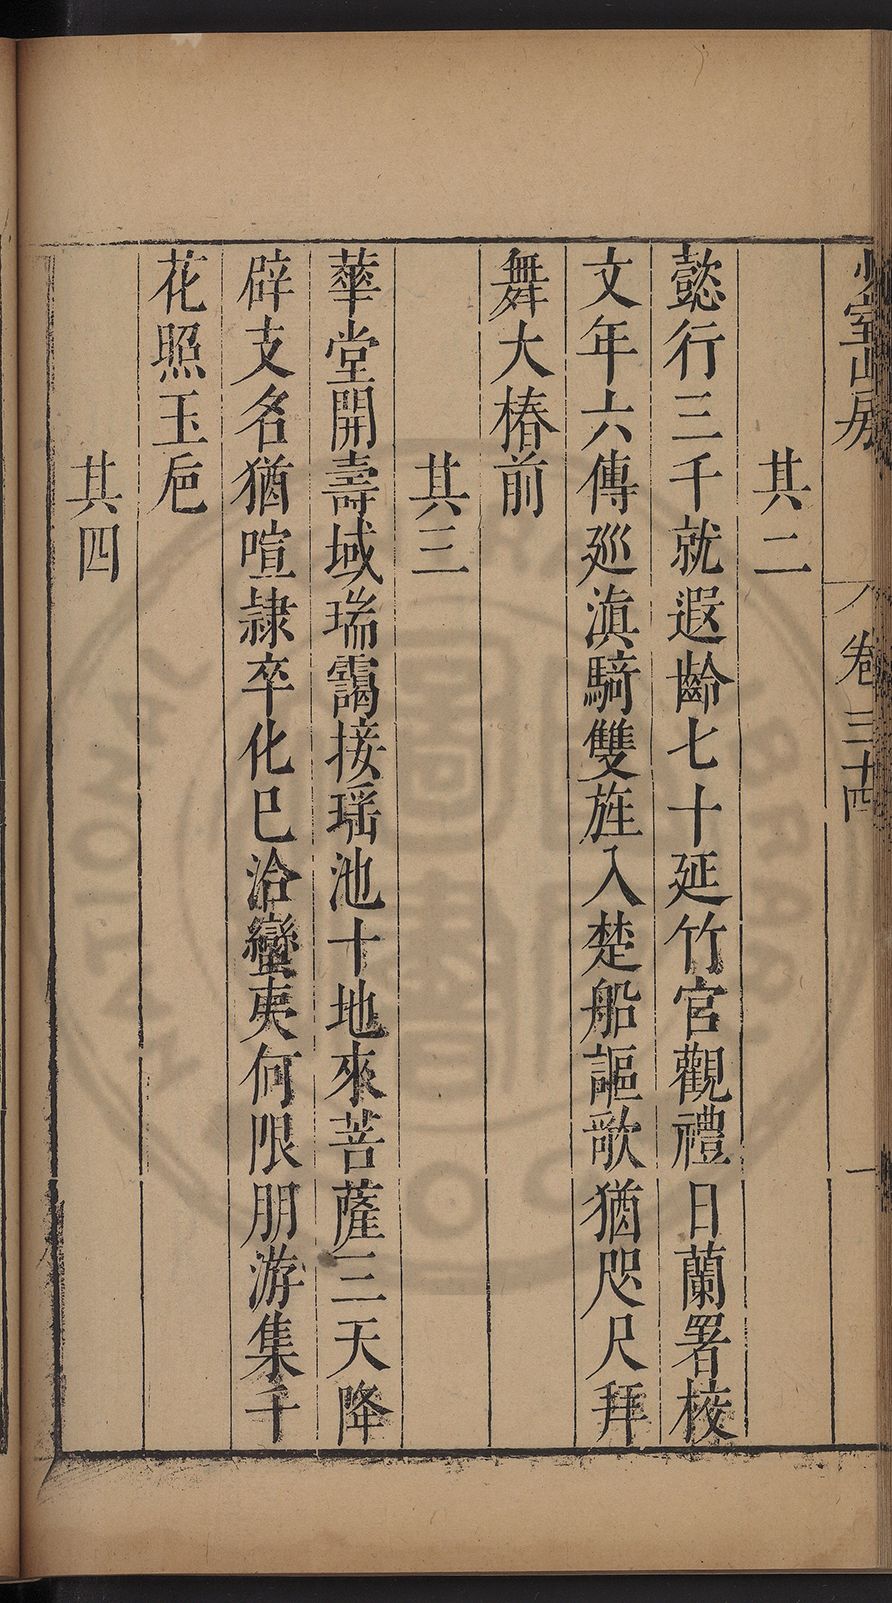 少室山房
卷三十四
一
其二
懿行三千就遐齡七十延竹宮觀禮日蘭署校
文年六傳廵滇騎雙旌入楚船謳歌猶咫尺拜
舞大椿前
其三
華堂開壽域瑞靄接瑶池十地來菩薩三天降
辟支名猶喧隷卒化巳洽蠻夷何限朋游集千
花照玉巵
其四